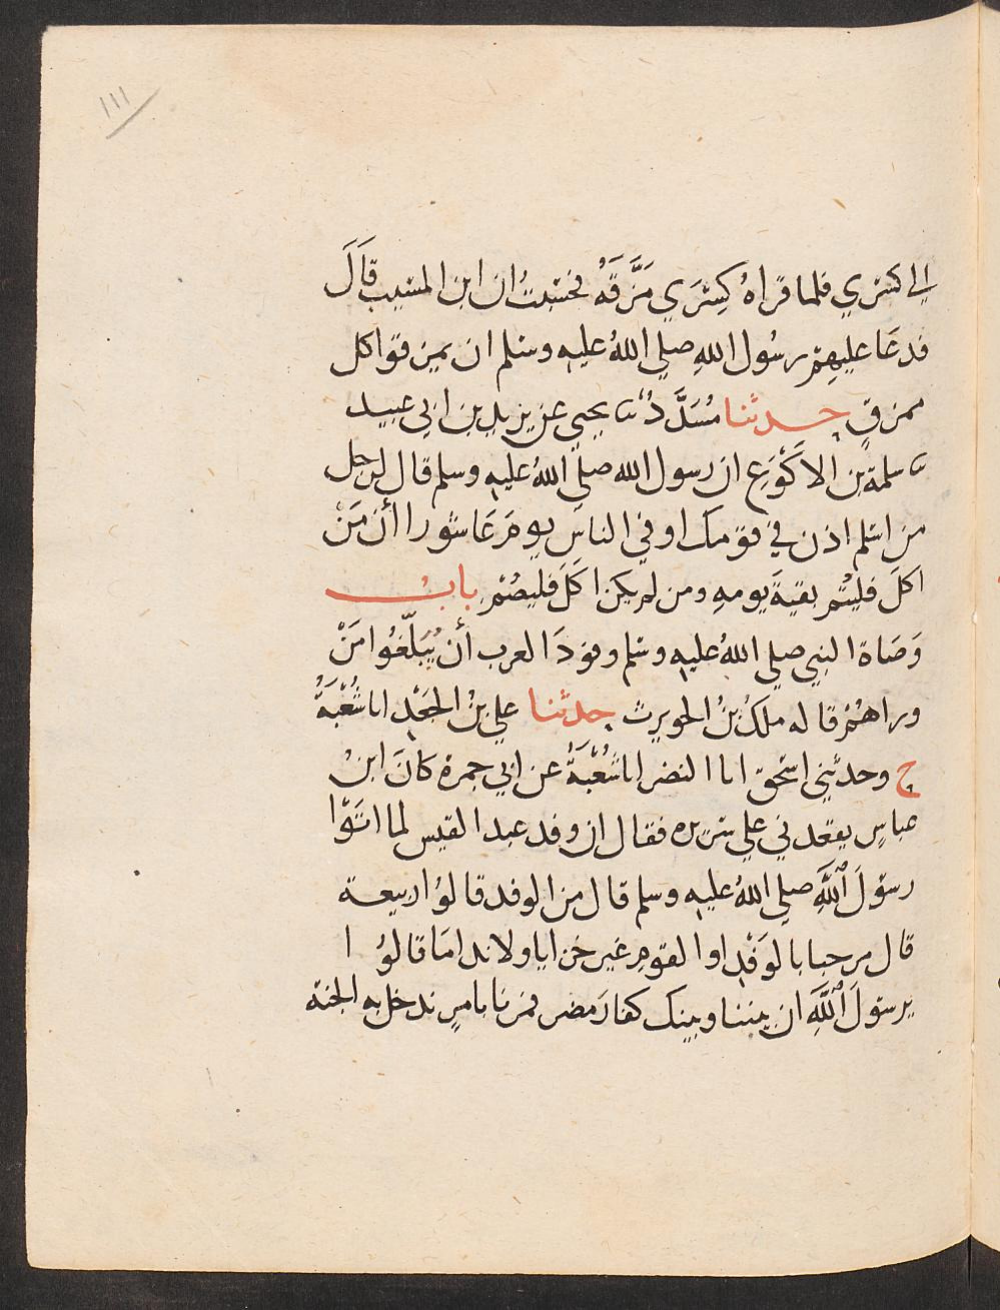 ١١١
الي كسري فلما قراهُ كِسْرَي مَزَّقَهُ فحَسِبْتُ ان ابن المسيب قَالَ
فدعَا عليهِمْ رسُول اللهِ صلي اللهُ عليهِ وسلم ان يمزقوا كل
ممزقٍ حدثنا مُسَدَّدٌ نا يحيي عن يزيد بن ابي عبيد
نا سلمة بن الاَكْوَعِ ان رسول الله صلّي اللهُ عليهِ وسلم قال لرجل
من اسْلم اذن في قومك او في الناسِ يومَ عَاشورا أن مَنْ
اكلَ فليُتْم بقيةَ يومهِ ومن لم يكن اَكَلَ فليصُمْ بابُ
وَصَاة النبي صلي اللهُ عليهِ وسلم وفودَ العرب أن يُبَلِّغُوا مَنْ
وراهُمْ قاله ملكُ بنُ الحويرث حدثنا علي بنُ الجَعْدِ انا شُعْبَةُ
ح وحدثني اسحق انا النضر انا شُعْبَةُ عن ابي جمرة كانَ ابنُ
عباسٍ يقعدني علي سريره فقال ان وفد عبد القيس لما اتَوْا
رسُولَ اللهِ صلي اللهُ عليهِ وسلم قال من الوفد قالوُا ربيعة
قال مرحبا بالوَفْدِ او القومِ غير خزايا ولا نداماَ قالوُا
يرسوُلَ اللَّهِ ان بيننا وبينك كفارَ مضر فمرنا بامرٍ ندخل به الجنة